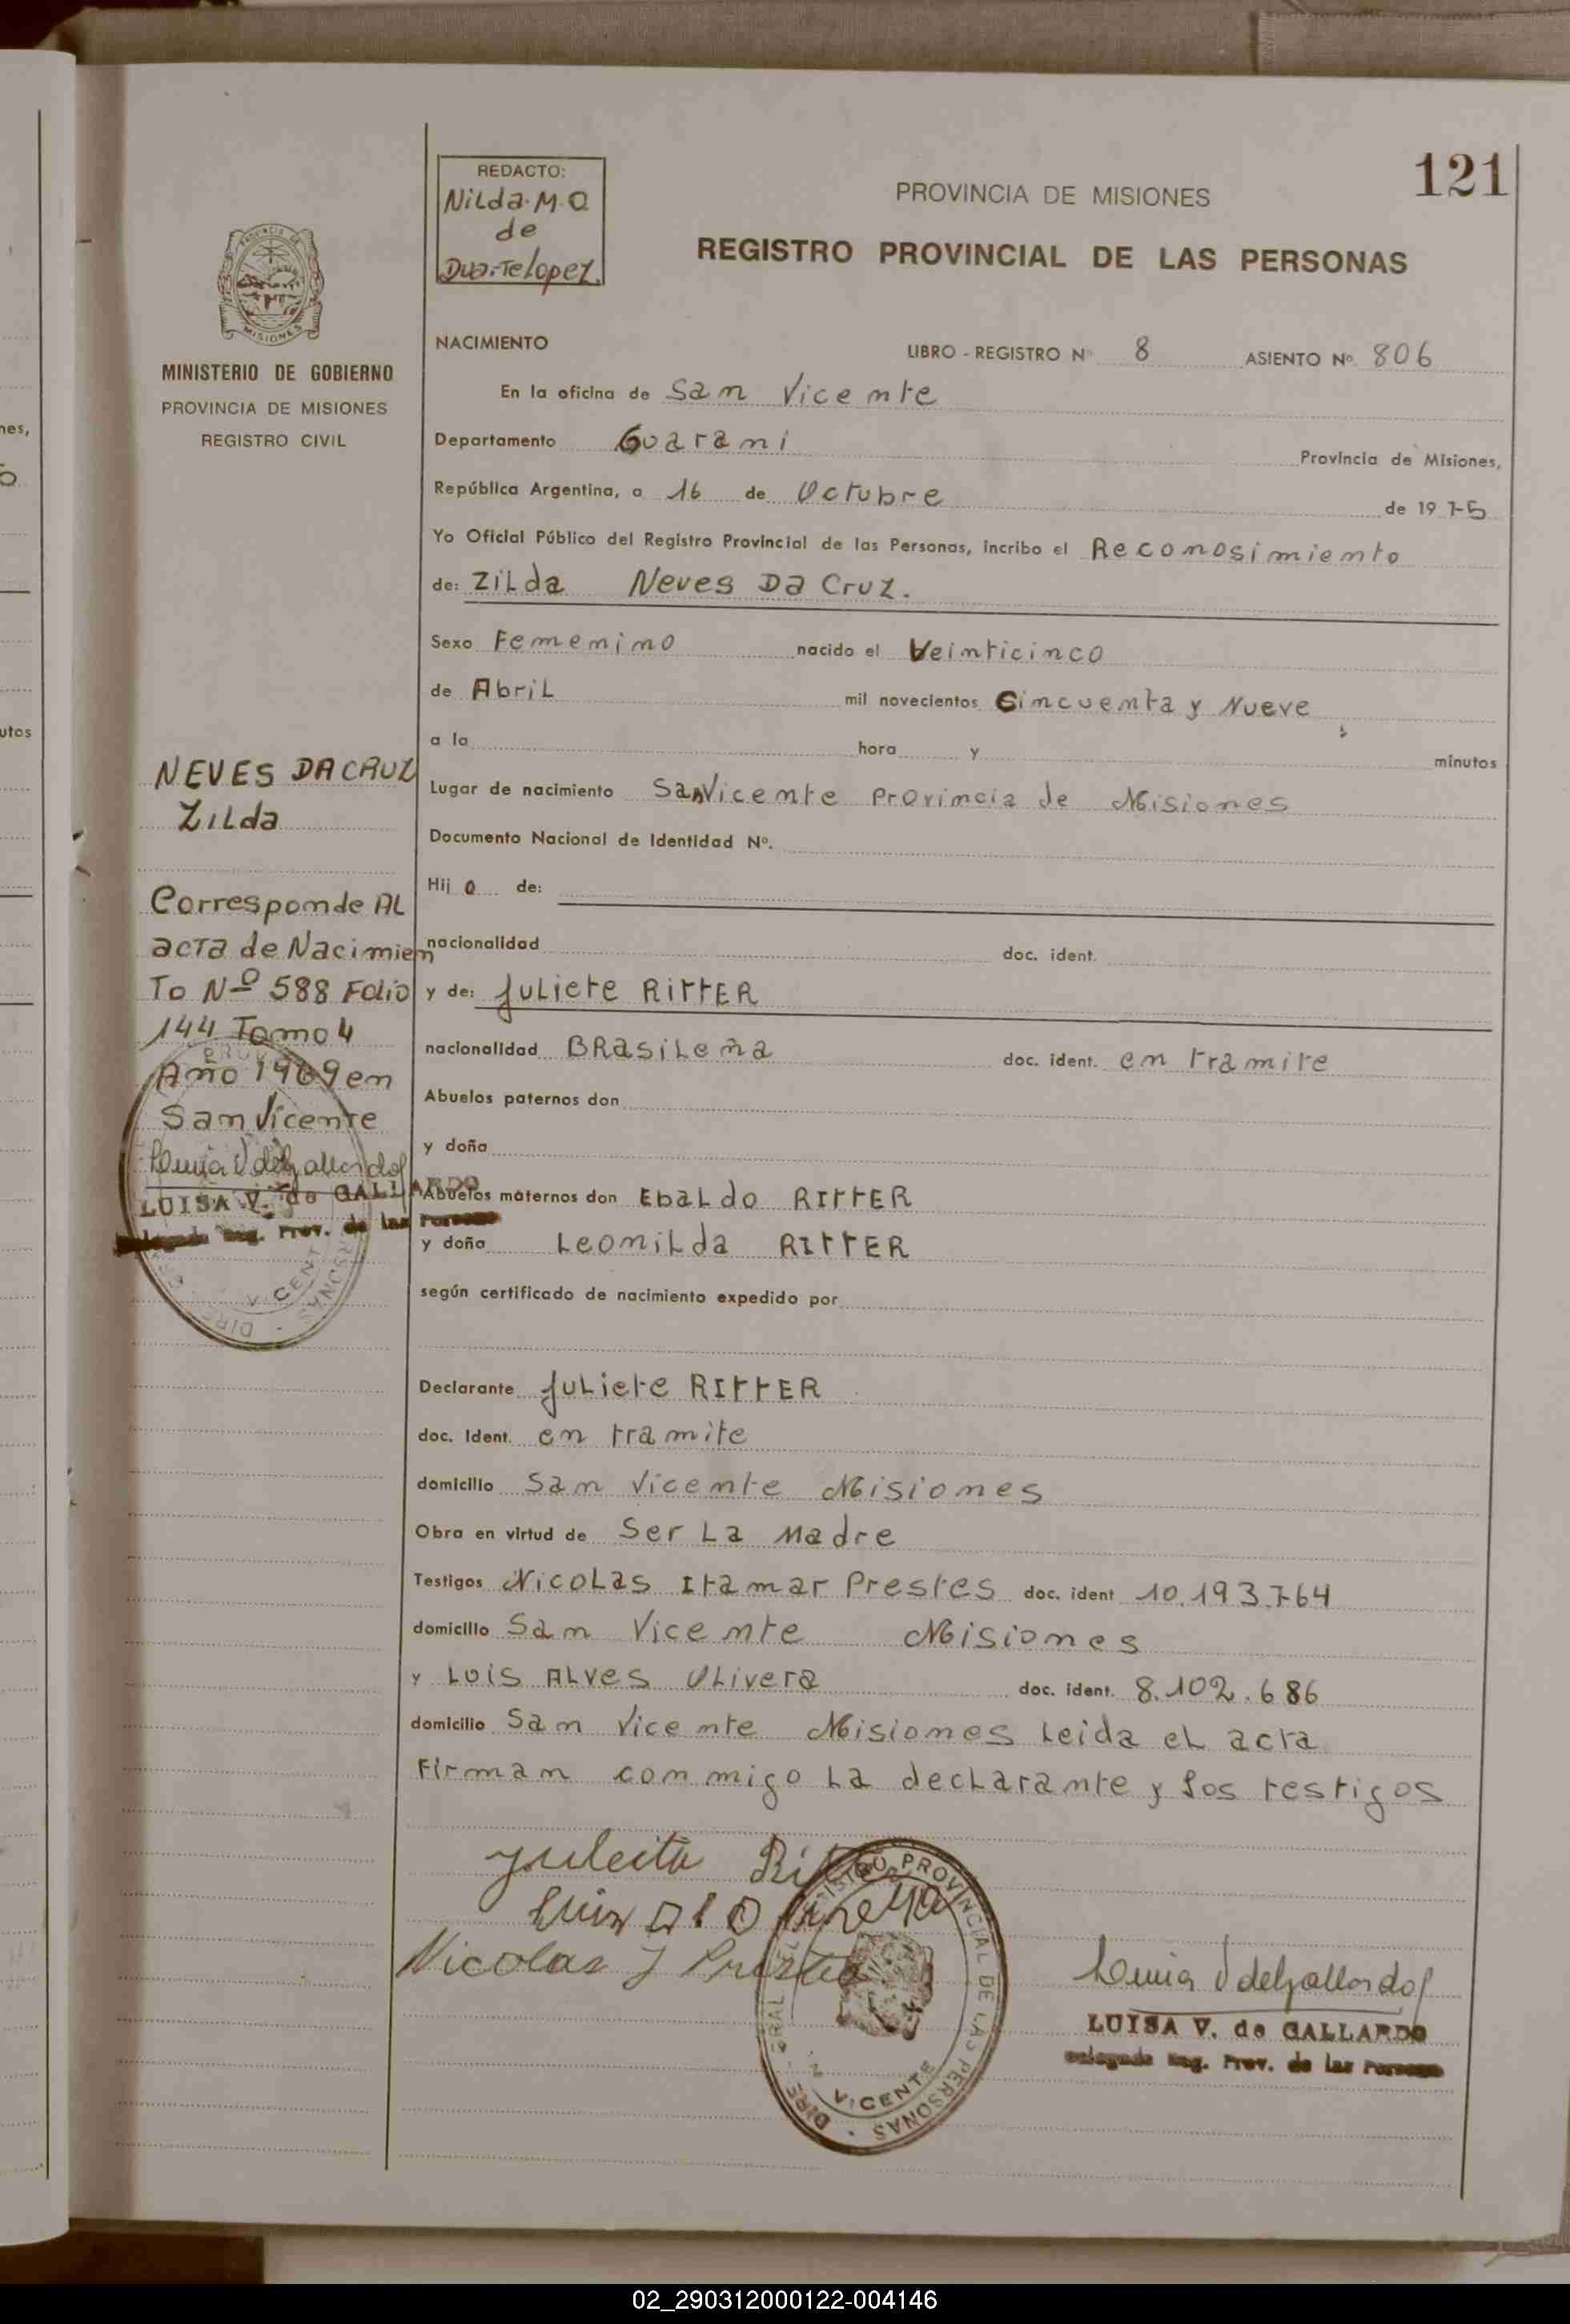 121
REDACTO:
Nilda M. O
de
Duarte Lopez.
PROVINCIA DE MISIONES
REGISTRO PROVINCIAL DE LAS PERSONAS
MINISTERIO DE GOBIERNO
PROVINCIA DE MISIONES
REGISTRO CIVIL
NACIMIENTO LIBRO - REGISTRO Nº 8 ASIENTO Nº 806
En la oficina de San Vicente
Departamento Guarani Provincia de Misiones,
República Argentina, a 16 de Octubre de 1975
Yo Oficial Público del Registro Provincial de las Personas, incribo el Reconosimiento
de: Zilda Neves Da Cruz.
Sexo Femenino nacido el Veinticinco
de Abril mil novecientos Cincuenta y Nueve
a la hora y minutos
Lugar de nacimiento San Vicente Provincia de Misiones
Documento Nacional de Identidad Nº.
Hij a de:
nacionalidad doc. ident.
y de: Juliete RITTER
nacionalidad BRasileña doc. ident. en tramite
Abuelos paternos don
y doña
Abuelos maternos don Ebaldo RITTER
y doña Leonilda RITTER
según certificado de nacimiento expedido por
Declarante Juliete RITTER
doc. Ident. en tramite
domicilio San Vicente Misiones
Obra en virtud de Ser La Madre
Testigos Nicolas Itamar Prestes doc. ident 10.193.764
domicilio San Vicente Misiones
y Luis Alves Olivera doc. ident. 8.102.686
domicilio San Vicente Misiones Leida el acta
Firman conmigo La declarante y los testigos
NEVES DA CRUZ
Zilda
Corresponde AL
acta de Nacimien
To Nº 588 Folio
144 Tomo 4
Año 1969 en
San Vicente
LUISA V. de GALLARDO
Reg. Prov. de las
VICENTE
Nicolas I Prestes
REGISTRO PROVINCIAL DE LAS PERSONAS
VICENTE
LUISA V. de GALLARDO
Reg. Prov. de las
nes,
utos
02_290312000122-004146